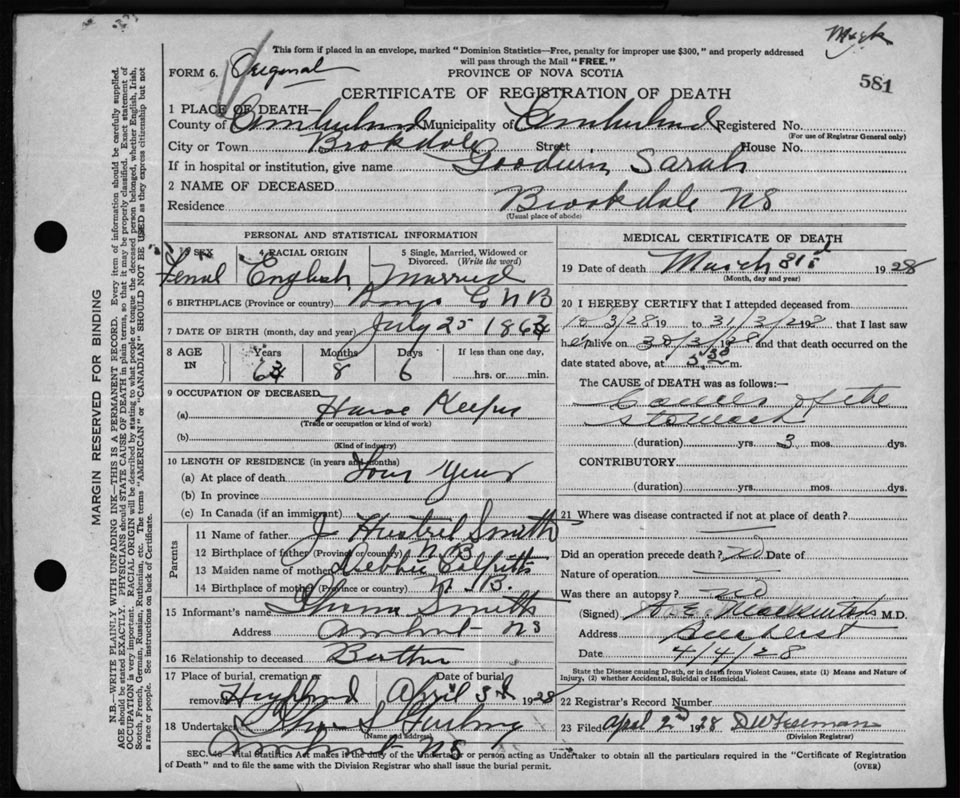 This form if placed in an envelope, marked "Dominion Statistics—Free, penalty for improper use $300," and properly addressed
will pass through the Mail "FREE."
FORM 6. Original
PROVINCE OF NOVA SCOTIA
581
CERTIFICATE OF REGISTRATION OF DEATH
1 PLACE OF DEATH—
County of Cumberland Municipality of Cumberland Registered No.
(For use of Registrar General only)
City or Town Brookdale Street House No.
If in hospital or institution, give name
Goodwin, Sarah
2 NAME OF DECEASED
Residence Brookdale NS
(Usual place of abode)
PERSONAL AND STATISTICAL INFORMATION
3 SEX 4 RACIAL ORIGIN 5 Single, Married, Widowed or
Divorced. (Write the word)
Femal English Married
6 BIRTHPLACE (Province or country) N B
7 DATE OF BIRTH (month, day and year) July 25 186
8 AGE IN Years Months Days If less than one day,
8 6 hrs. or min.
9 OCCUPATION OF DECEASED
(a) House Keeper
(Trade or occupation or kind of work)
(b)
(Kind of industry)
10 LENGTH OF RESIDENCE (in years and months)
(a) At place of death Four Years
(b) In province
(c) In Canada (if an immigrant)
Parents
11 Name of father J Smith
12 Birthplace of father (Province or country) N.B.
13 Maiden name of mother Colpitts
14 Birthplace of mother (Province or country) N.B.
15 Informant's name Smith
Address Amherst NS
16 Relationship to deceased
17 Place of burial, cremation or removal Date of burial
April 3rd 1928
18 Undertaker
(Name and address)
Amherst NS
MEDICAL CERTIFICATE OF DEATH
19 Date of death March 31st 1928
(Month, day and year)
20 I HEREBY CERTIFY that I attended deceased from
3/28 19 to 31/3/28 that I last saw
her alive on 30/3/28 and that death occurred on the
date stated above, at 5.30 m.
The CAUSE OF DEATH was as follows:—
Cancer of the
stomach
(duration) yrs. 3 mos. dys.
CONTRIBUTORY
(duration) yrs. mos. dys.
21 Where was disease contracted if not at place of death?
Did an operation precede death? no Date of
Nature of operation
Was there an autopsy? no
(Signed) M.D.
Address Amherst
Date 4/4/28
State the Disease causing Death, or in death from Violent Causes, state (1) Means and Nature of
Injury, (2) whether Accidental, Suicidal or Homicidal.
22 Registrar's Record Number
23 Filed April 2nd 1928 D W Freeman
(Division Registrar)
SEC. Vital Statistics Act makes it the duty of the Undertaker or person acting as Undertaker to obtain all the particulars required in the "Certificate of Registration
of Death" and to file the same with the Division Registrar who shall issue the burial permit.
(OVER)
MARGIN RESERVED FOR BINDING
N.B.—WRITE PLAINLY WITH UNFADING INK—THIS IS A PERMANENT RECORD. Every item of information should be carefully supplied.
AGE should be stated EXACTLY. PHYSICIANS should STATE CAUSE OF DEATH in plain terms, so that it may be properly classified. Exact statement of
OCCUPATION is very important. RACIAL ORIGIN will be described by stating to what people or tongue the deceased person belonged, whether English, Irish,
Scotch, French, German, Russian, Ruthenian, etc. The terms "AMERICAN" or "CANADIAN" SHOULD NOT BE USED as they express citizenship but not
a race or people. See instructions on back of Certificate.